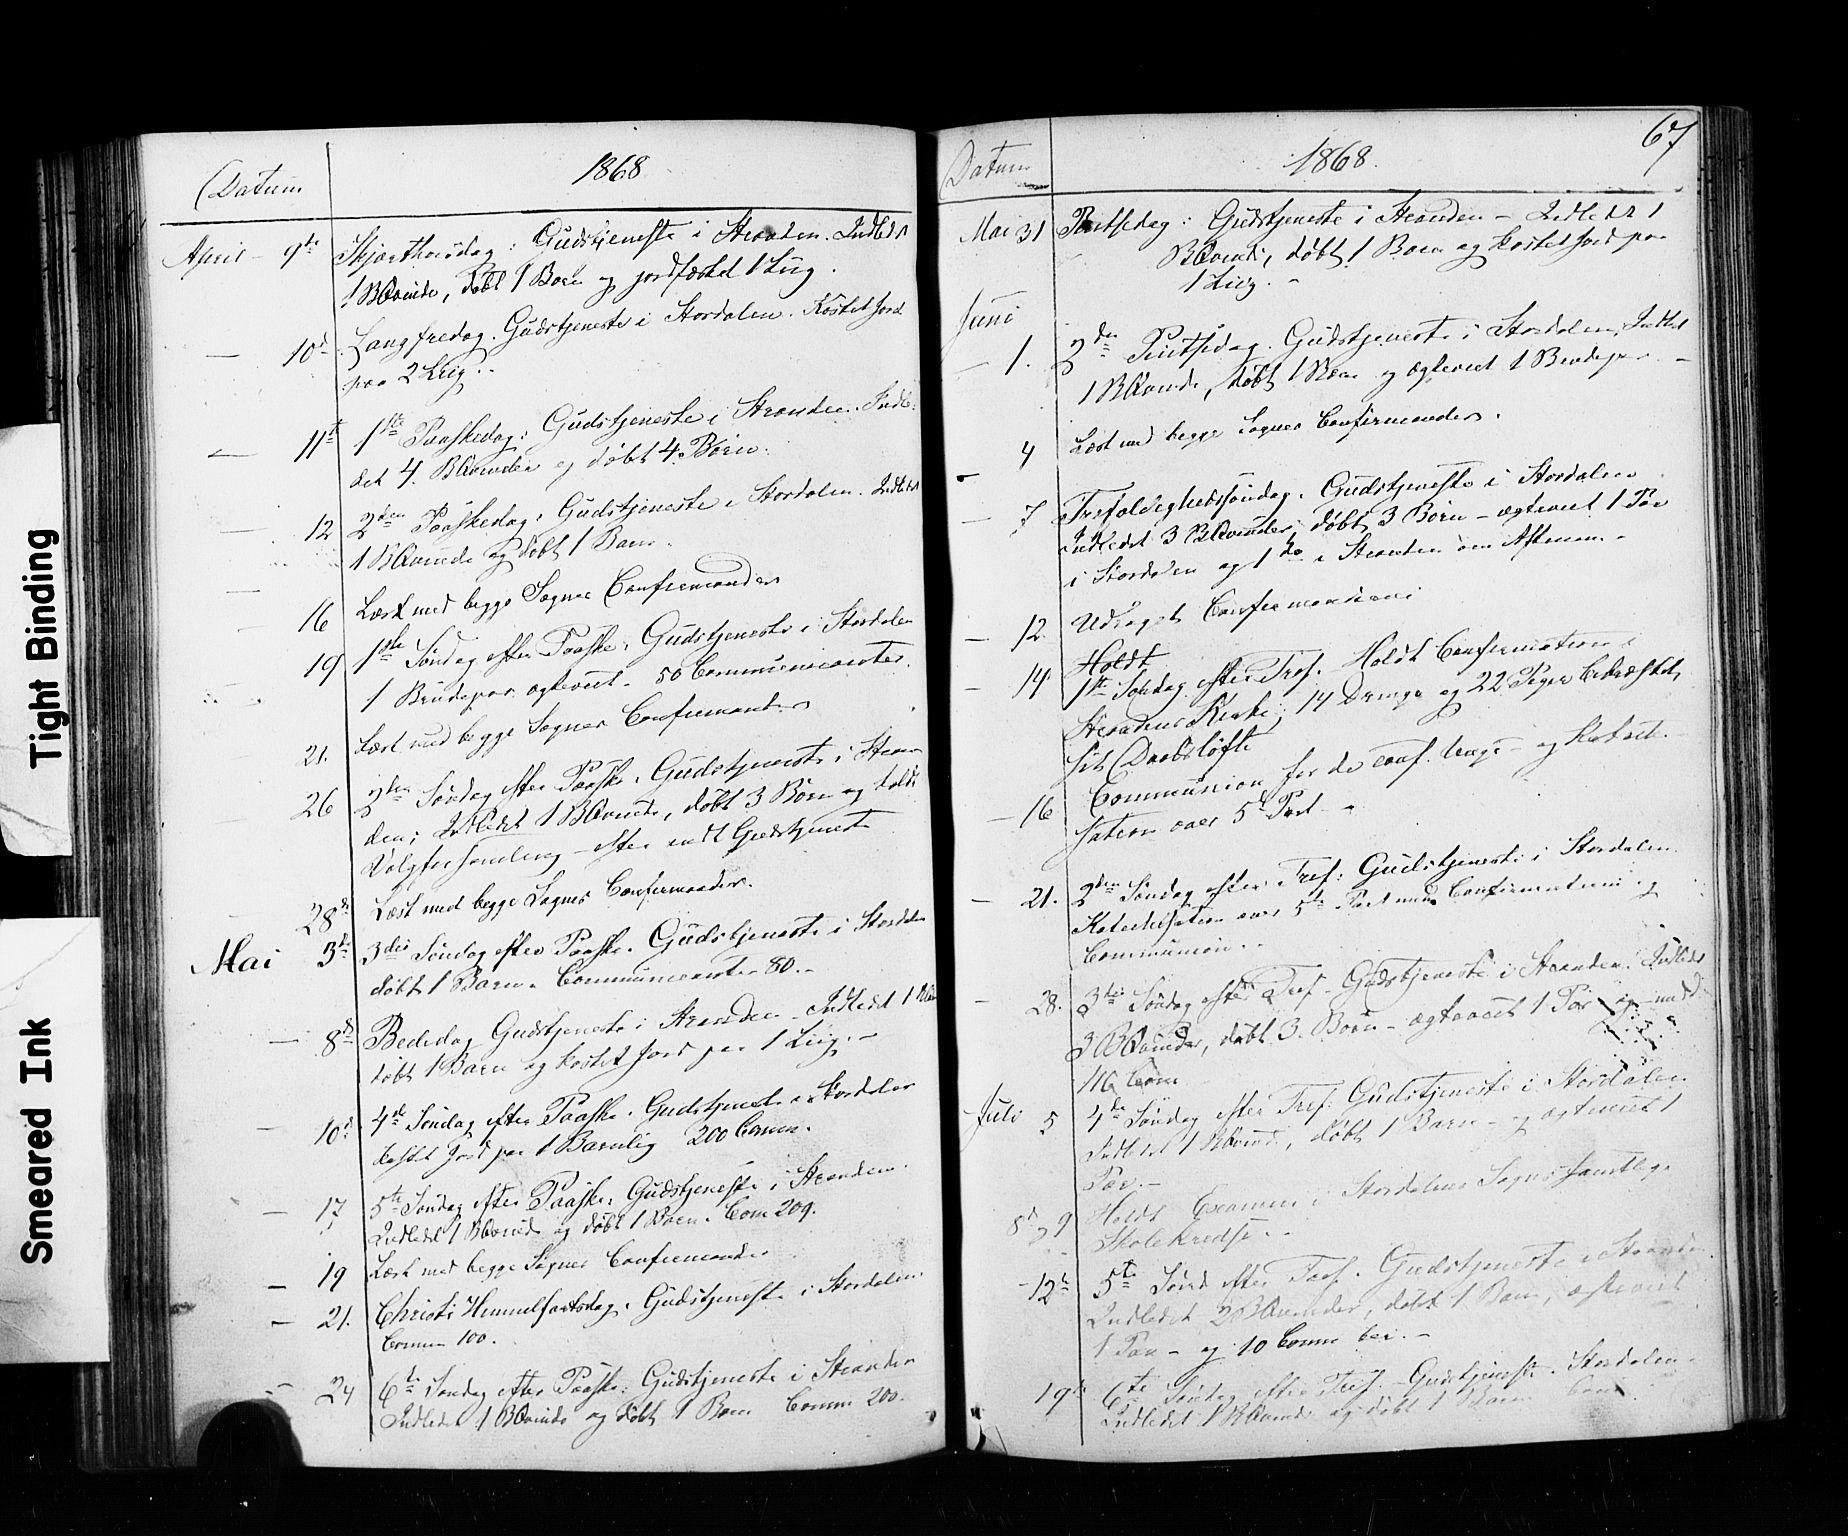 Datum 1868
April 9de Skjærthorsdag: Gudstjeneste i Stranden. Indledt
1 BKvinde, døbt 1 Barn og jordfæstet 1 Liig.
— 10d Langfredag. Gudstjeneste i Stordalen. Kastet Jord
paa 2 Liig.
— 11t 1ste Paaskedag: Gudstjeneste i Stranden. Indle-
det 4 BKvinder og døbt 4 Børn.
— 12 2den Paaskedag: Gudstjeneste i Stordalen. Indledet
1 BKvinde og døbt 1 Barn.
— 16 Læst med begge Sognes Confirmander
19 1ste Søndag efter Paaske: Gudstjeneste i Stordalen
1 Brudepar ægteviet – 50 Communicanter.
21. Læst med begge Sognes Confirmander
26 2den Søndag efter Paaske: Gudstjeneste i Stran-
den; Indledet 1 BKvinde, døbt 3 Børn og holdt
Valgforsamling – efter endt Gudstjeneste
28de Læst med begge Sognes Confirmander.
Mai 3de 3die Søndag efter Paaske. Gudstjeneste i Stordalen
døbt 1 Barn. Communicanter 80. –
— 8de Bededag Gudstjeneste i Stranden – Indledet 1 BKv
døbt 1 Barn og kastet Jord paa 1 Liig. –
— 10d 4de Søndag efter Paaske. Gudstjeneste i Stordalen
kastet Jord paa 1 Barnliig 200 Comm.
— 17 5te Søndag efter Paaske: Gudstjeneste i Stranden.
Indledet 1 BKvinde og døbt 1 Barn. Com 209.
— 19 Læst med begge Sognes Confirmander
— 21. Christi Himmelfartsdag. Gudstjeneste i Stordalen
Comm 100.
— 24 6te Søndag efter Paaske: Gudstjeneste i Stranden
Indledet 1 BKvinde og døbt 1 Barn Comm 200.
67
Datum 1868.
Mai 31 Pintsedag: Gudstjeneste i Stranden – Indledet 1
BKvinde, døbt 1 Barn og kastet Jord paa
1 Liig. –
Juni
— 1. 2den Pintsedag. Gudstjeneste i Stordalen; Indledet
1 BKvinde, døbt 1 Barn og ægteviet 1 Brudepar. –
4 Læst med begge Sognes Confirmander.
— 7 Trefoldighedssøndag. Gudstjeneste i Stordalen
Indledet 3 BKvinder, døbt 3 Børn – ægteviet 1 Par
i Stordalen og 1 do i Stranden om Aftenen. –
— 12. Confirmanderne
Holdt
— 14 1ste Søndag efter Tref. Holdt Confirmation i
Strandens Kirke; 14 Drenge og 22 Piger bekræftet
sit Daabsløfte
— 16 Communion for de conf. Unge – og Kateke-
sation over 5te Part –
— 21. 2den Søndag efter Tref: Gudstjeneste i Stordalen
Katechisation over 5te Part med Confirmanterne og
Communion. –
— 28. 3die Søndag efter Tref – Gudstjeneste i Stranden. Indledet
3 BKvinder, døbt 3. Børn – ægteviet 1 Par og med
116 Com
Juli 5 4de Søndag efter Tref: Gudstjeneste i Stordalen
Indledet 1 BKvinde, døbt 1 Barn – og ægteviet 1
Par. –
8d 9 Holdt Examen i Stordalens Sogns samtlige
Skolekredse. –
— 12te 5te Sønd efter Tref. Gudstjeneste i Stranden
Indledet 2 BKvinder, døbt 1 Barn, ægteviet
1 Par – og 10 Comm –
19de 6te Søndag efter Tref. – Gudstjeneste. Stordalen –
Indledet 1 BKvinde og døbt 1 Barn
Tight Binding
Smeared Ink